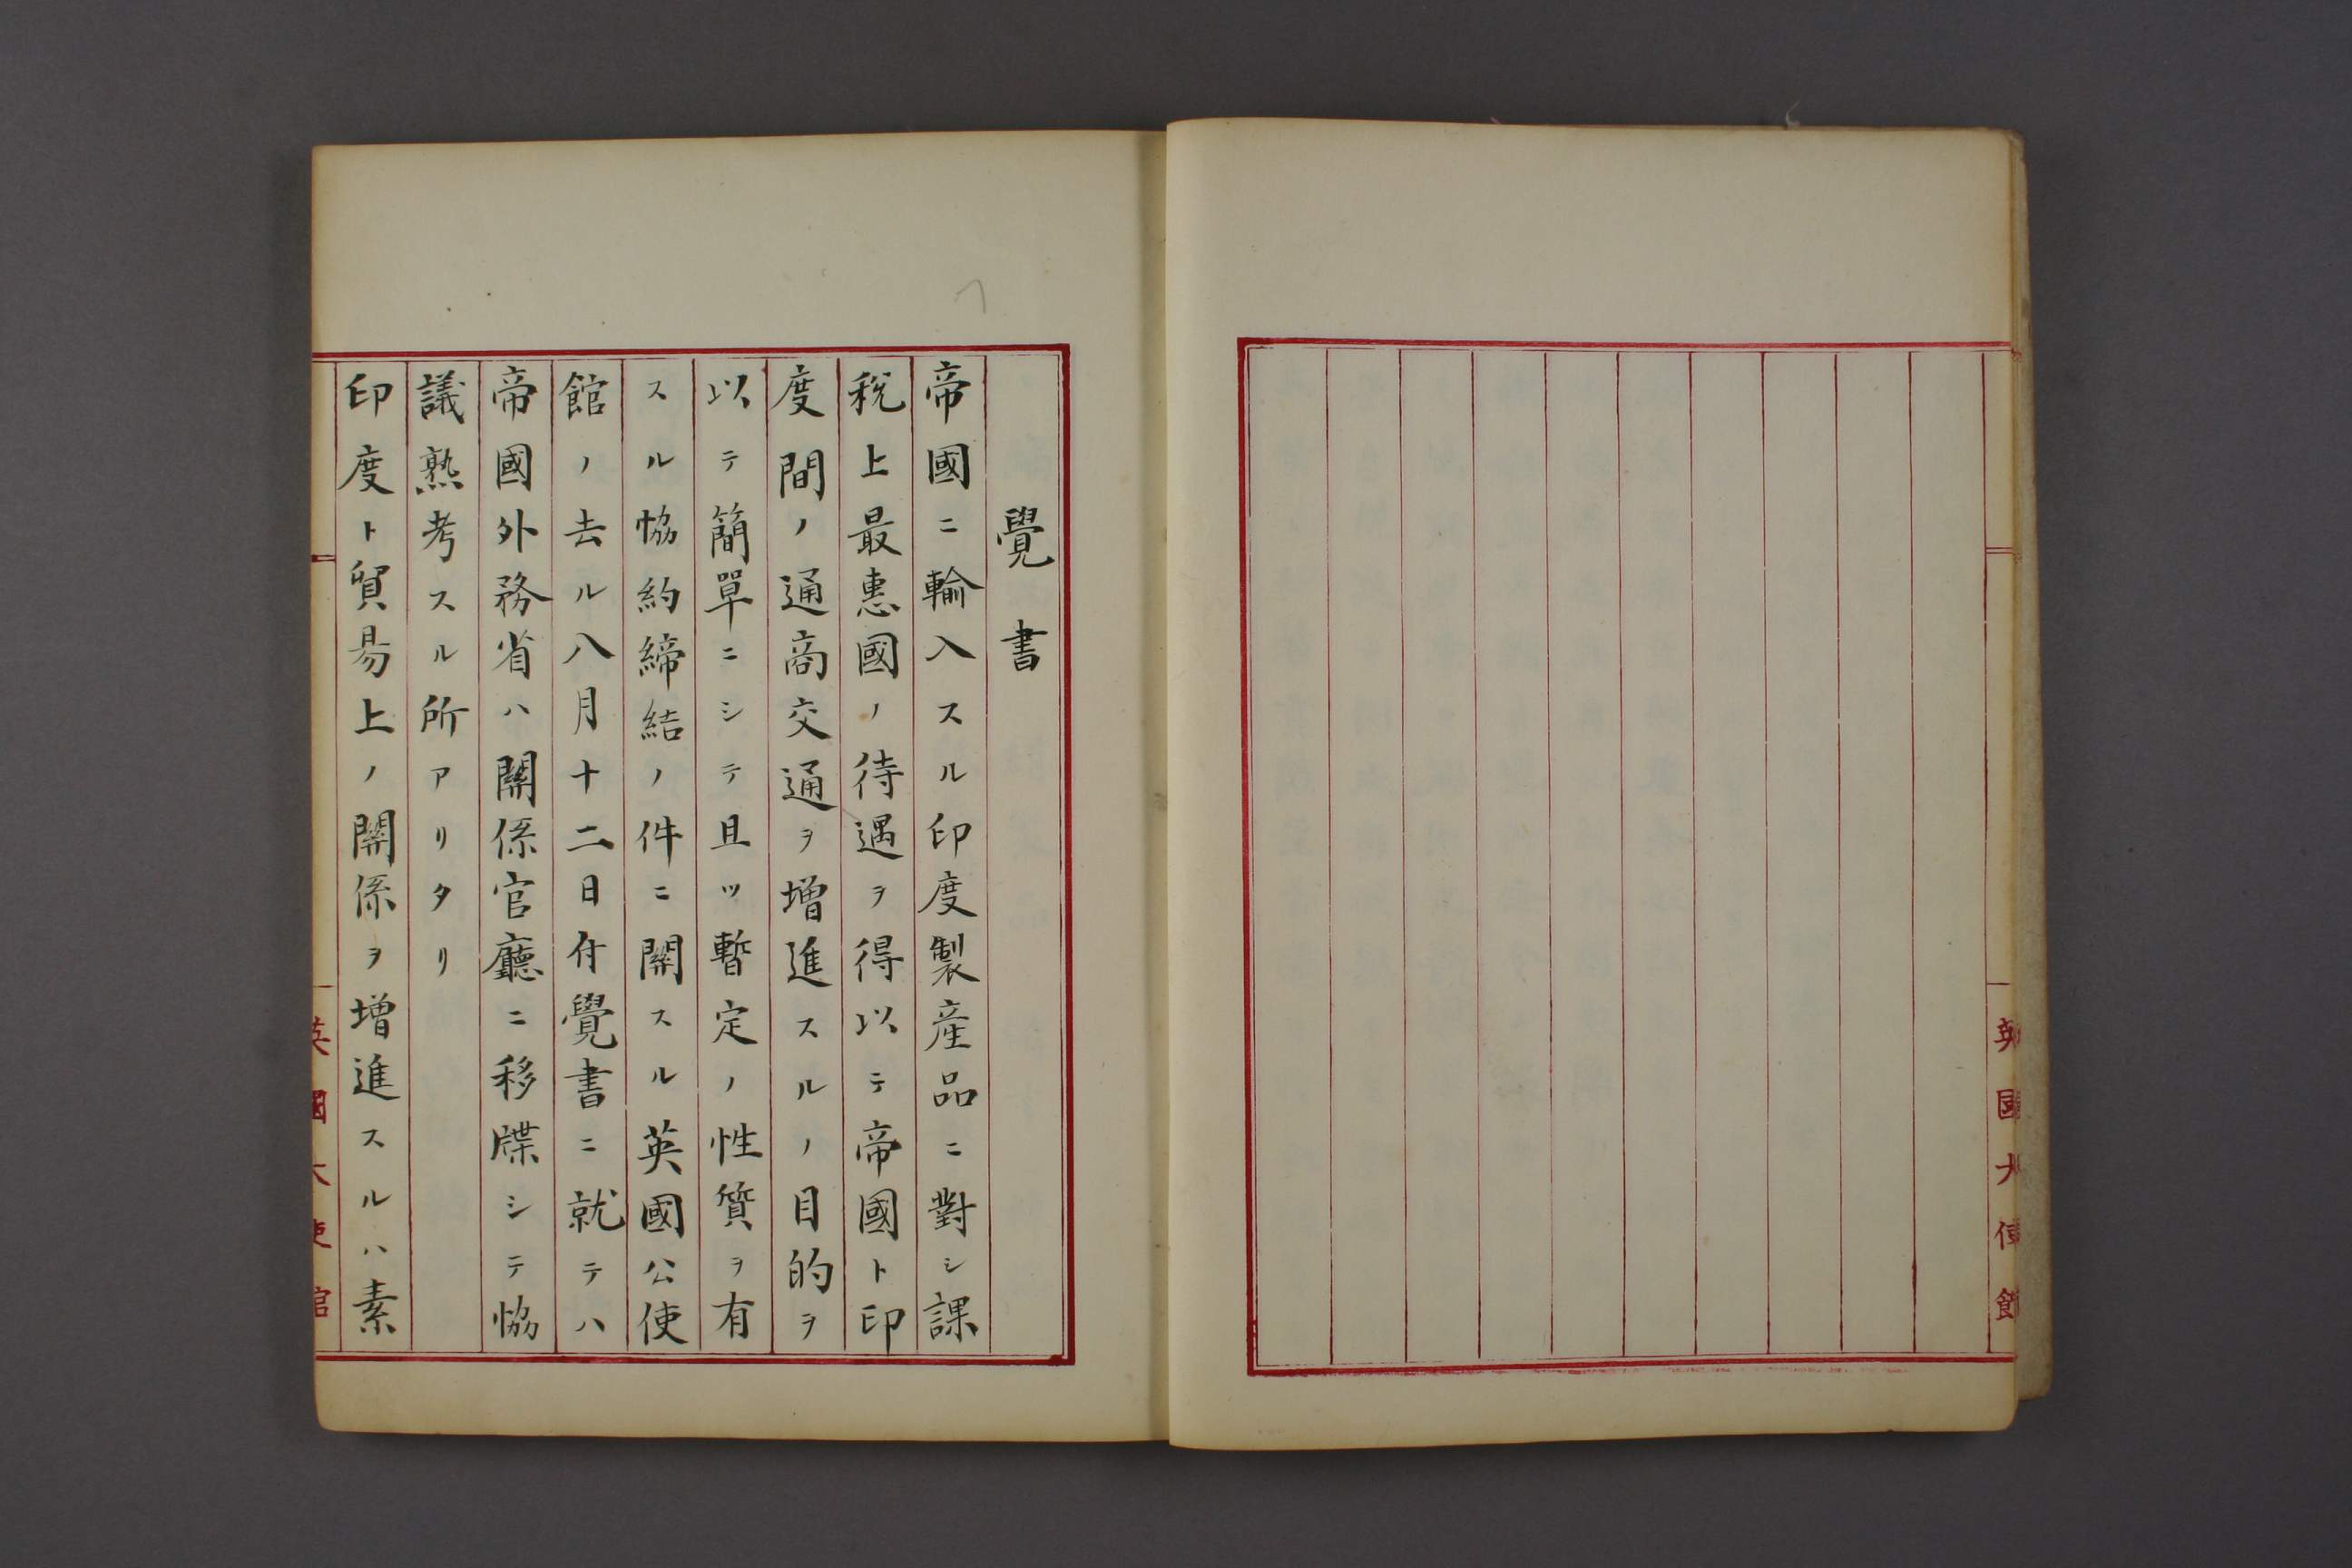 英國大使館
覺書
帝國ニ輸入スル印度製産品ニ對シ課
稅上最惠國ノ待遇ヲ得以テ帝國ト印
度間ノ通商交通ヲ增進スルノ目的ヲ
以テ簡單ニシテ且ツ暫定ノ性質ヲ有
スル恊約締結ノ件ニ關スル英國公使
館ノ去ル八月十二日付覺書ニ就テハ
帝國外務省ハ關係官廳ニ移牒シテ恊
議熟考スル所アリタリ
印度ト貿易上ノ關係ヲ增進スルハ素
英國大使館